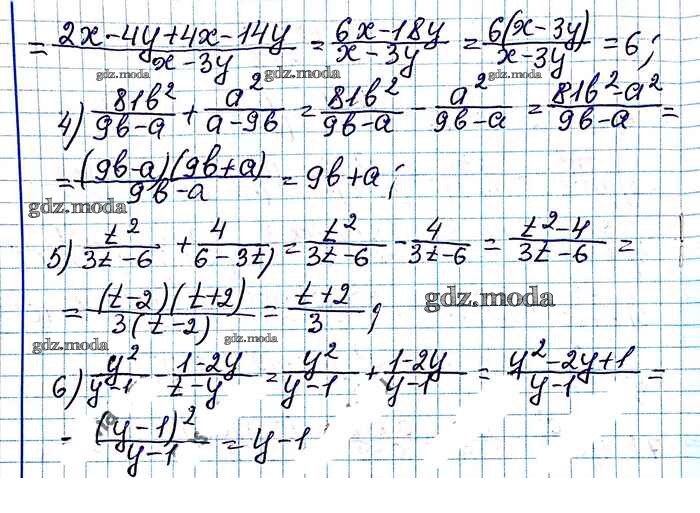 = (2x-4y+4x-14y)/(x-3y) = (6x-18y)/(x-3y) = 6(x-3y)/(x-3y) = 6;
gdz.moda gdz.moda gdz.moda
4) 81b²/(9b-a) + a²/(a-9b) = 81b²/(9b-a) - a²/(9b-a) = (81b²-a²)/(9b-a) =
= (9b-a)(9b+a)/(9b-a) = 9b+a;
gdz.moda
5) t²/(3t-6) + 4/(6-3t) = t²/(3t-6) - 4/(3t-6) = (t²-4)/(3t-6) =
= (t-2)(t+2)/3(t-2) = (t+2)/3;
gdz.moda
gdz.moda gdz.moda
6) y²/(y-1) - (1-2y)/(t-y) = y²/(y-1) + (1-2y)/(y-1) = (y²-2y+1)/(y-1) =
- (y-1)²/(y-1) = y-1